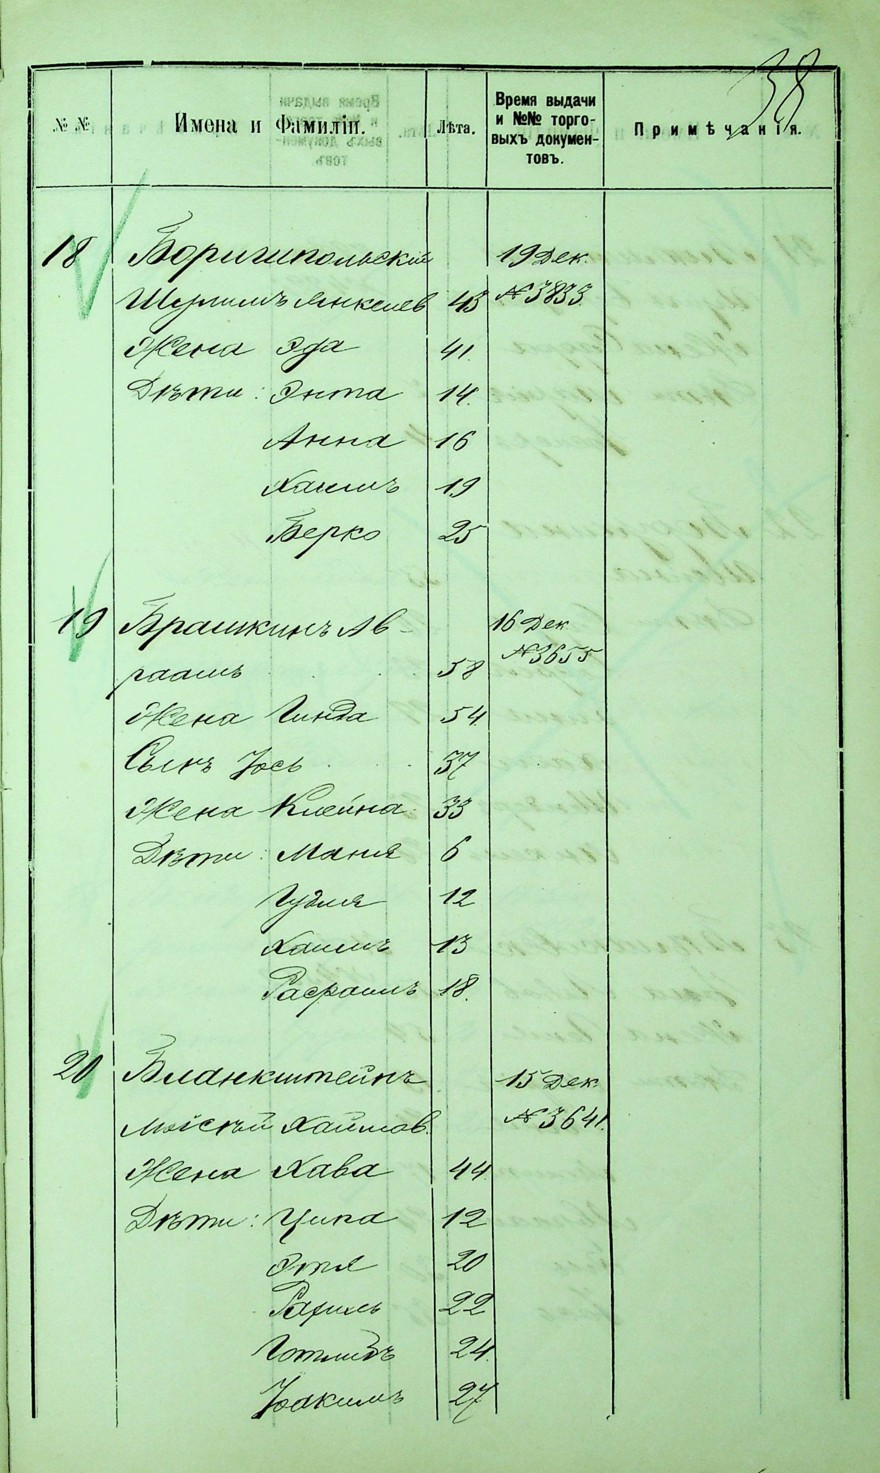 38
№ №
Имена и Фамиліи.
Лѣта.
Время выдачи
и №№ торго-
выхъ докумен-
товъ.
Примѣчанія.
18 Боришпольскій 19 Дек.
Шулимъ Янкелев 43 № 3833.
Жена Эда 41.
Дѣти: Энта 14.
Анна 16
Хаимъ 19
Берко 25
19 Брашкинъ Ав- 16 Дек
раамъ 58 № 3655
Жена Гинда 54
Сынъ Іось 37
Жена Клейна 33
Дѣти: Маня 6
Гудля 12
Хаимъ 13
Рафаилъ 18.
20 Бланкштейнъ 15 Дек
Мойсѣй Хаимов. № 3641.
Жена Хава 44
Дѣти: Ципа 12
Этля 20
Рахиль 22
Готлибъ 24.
Іоакимъ 27